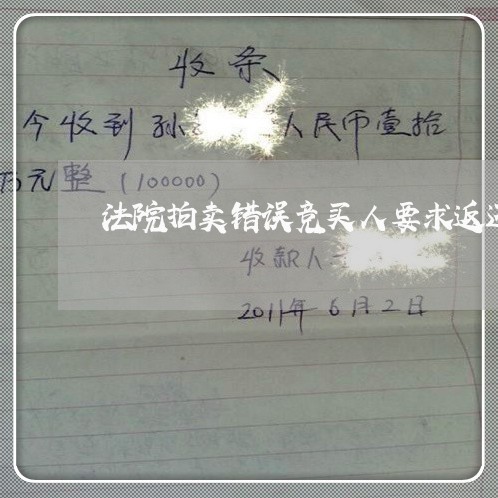 收条
今收到孙 人民币壹拾
万元整(100000)
法院拍卖错误竞买人要求返
收款人
2011年6月2日